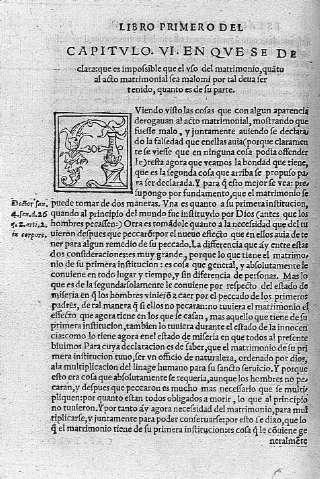 LIBRO PRIMERO DEL
CAPITVLO. VI. EN QVE SE DE
clara: que es impossible que el vso del matrimonio, quãto
al acto matrimonial sea malo: ni por tal deua ser
tenido, quanto es de su parte.
Viendo visto las cosas que con algun aparencia
derogauan al acto matrimonial, mostrando que
fuesse malo, y juntamente auiendo se declara
do la falsedad que en ellas auia (porque claramen
te se viesse que en ninguna cosa podia offender
le) resta agora que veamos la bondad que tiene,
que es la segunda cosa que arriba se propuso pa
ra ser declarada. Y para q̃ esto mejor se vea: pres
supongo por fundamento, que el matrimonio se
puede tomar de dos maneras. Vna es quanto a su primera institucion,
quando al principio del mundo fue instituydo por Dios (antes que los
hombres pecassẽ:) Otra es tomãdole quanto a la necessidad que del tu
uieron despues que peccarõ: por el nueuo effecto que en ellos auia de te
ner para algun remedio de su peccado. La differencia que ay entre estas
dos consideraciones: es muy grande, porque lo que tiene el matrimo
nio de su primera institucion: es cosa que general, y absolutamente le
conuiene en todo lugar y tiempo, y sin diferencia de personas. Mas lo
que es de la segunda: solamente le conuiene por respecto del estado de
miseria en q̃ los hombres viniẽrõ a caer por el peccado de los primeros
padres, de tal manera q̃ si ellos no pecaran: no tuuiera el matrimonio el
effecto que agora tiene en los que se casan, mas aquello que tiene de su
primera institucion, tambien lo tuuiera durante el estado de la innocen
cia: como lo tiene agora enel estado de miseria en que todos al presente
biuimos Para cuya declaracion es de saber, que el matrimonio de su pri
mera institucion tuuo, ser vn officio de naturaleza, ordenado por dios,
ala multiplicacion del linage humano para su sancto seruicio. Y porque
esto era cosa que absolutamente se requeria, aunque los hombres no pe
caran, y despues que peccaron es mucho mas necessario que se multi
pliquen: por quanto estan todos obligados a morir, lo que al principio
no tuuieron. Y por tanto ay agora necesidad del matrimonio, para mul
tiplicarse, y juntamente para poder conseruarse: por esto se dixo, que lo
q̃ el matrimonio tiene de su primera institucion: es cosa q̃ le cõuiene ge
neralmẽte
Doctor san.
4. sen. d. 26
q. 2. arti. 2.
in corpore.